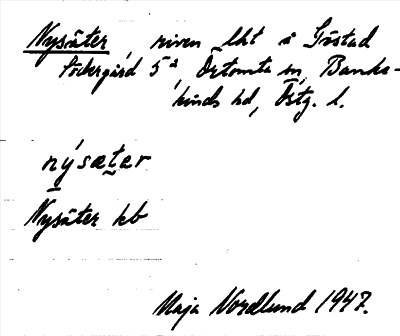 Nysäter, riven lht å Gistad
Södergård 5ᵃ, Örtomta sn, Banke-
kinds hd, Östg. l.
nýsætər
Nysäter kb
Maja Nordlund 1947.